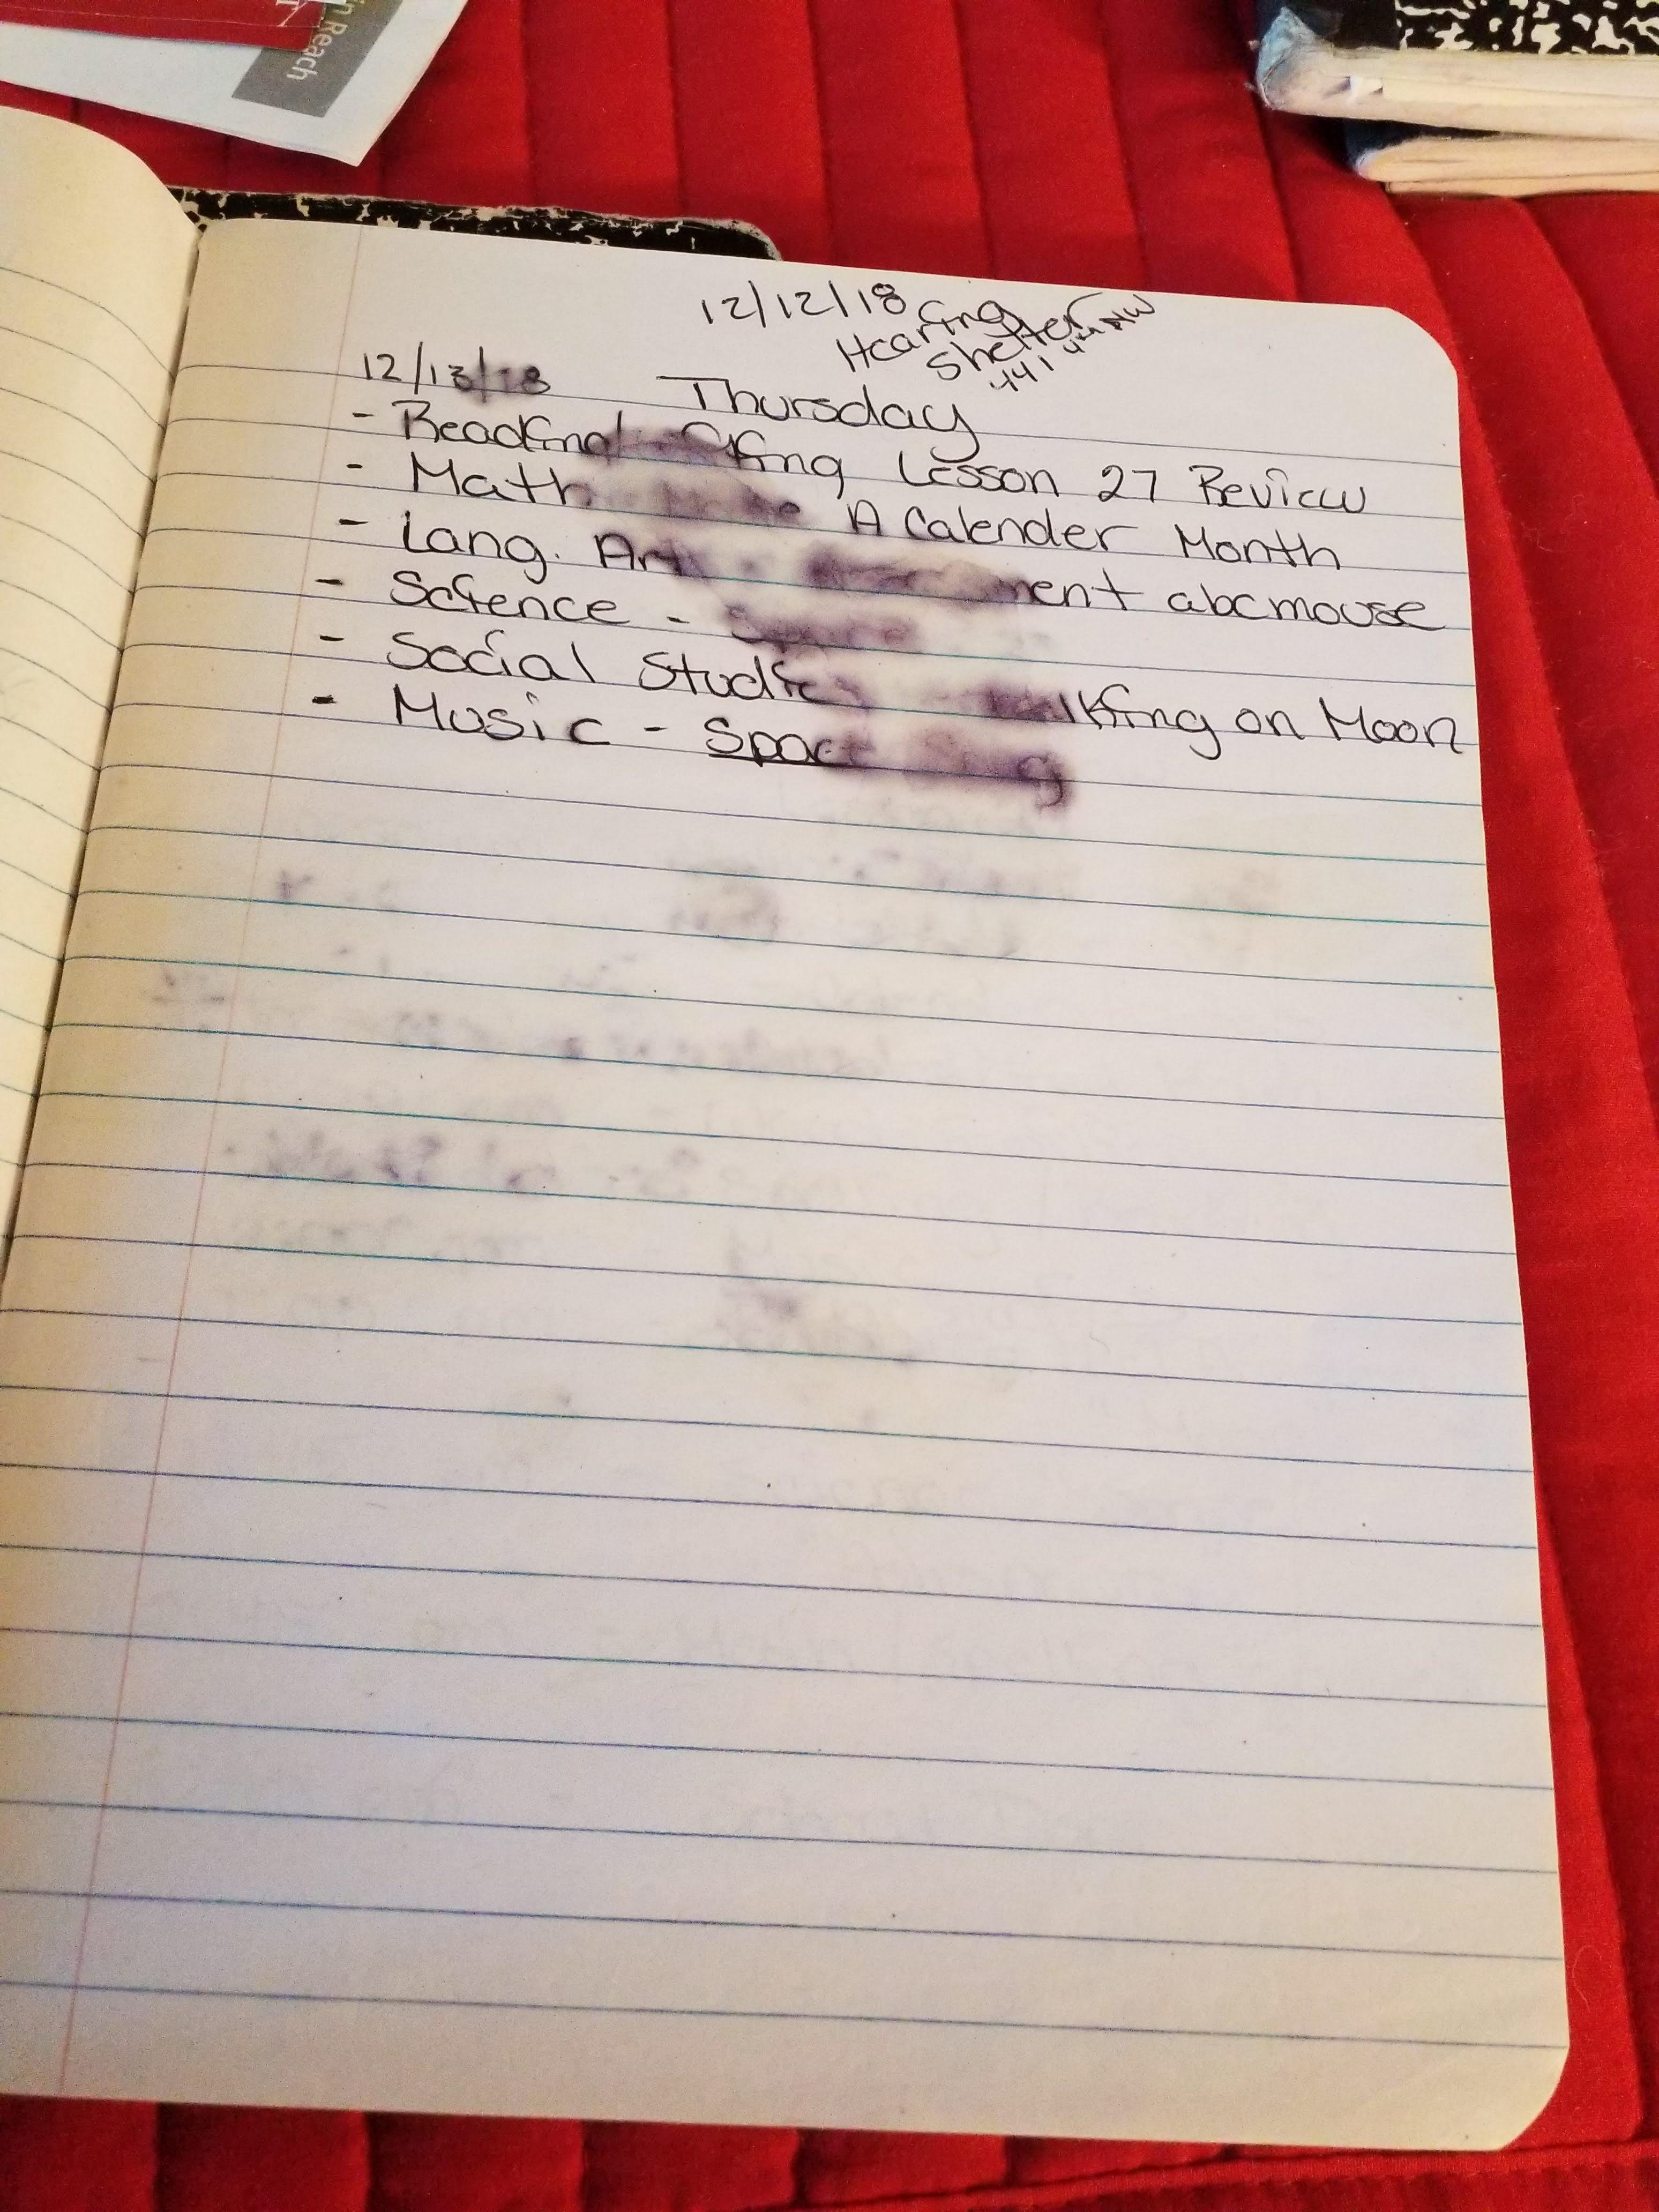 in Reach
12/12/18
Hearing
Shelter
441 4th NW
12/13/18 Thursday
- Reading Lesson 27 Review
- Math A Calender Month
- Lang. Art abcmouse
- Science - Space
- Social Studies on Moon
- Music - Space Song